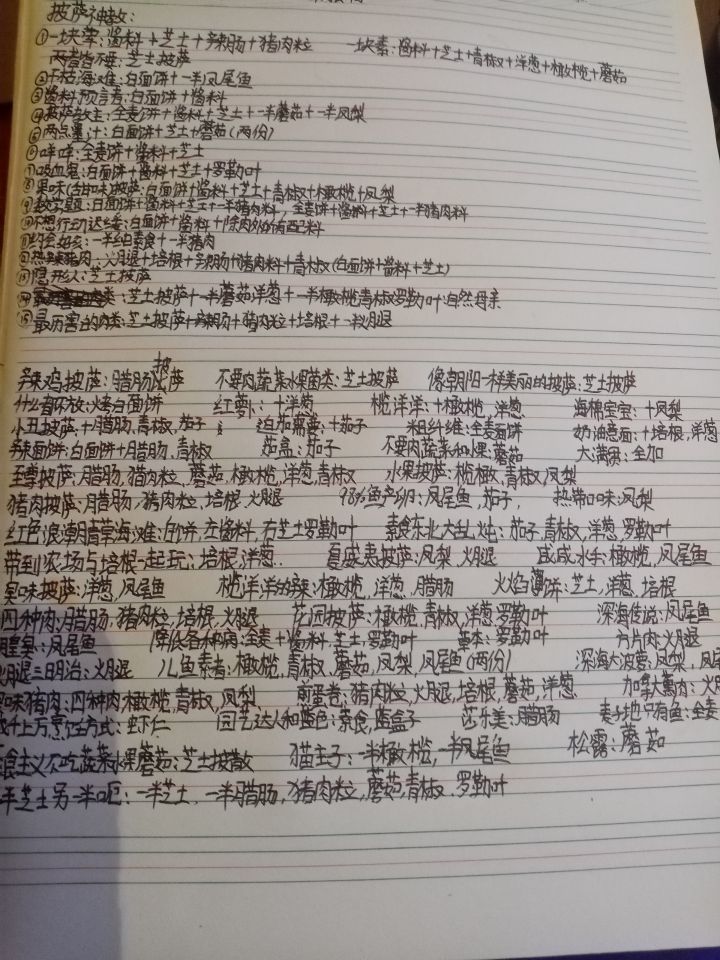 披萨神教:
①一块荤:酱料+芝士+辣肠+猪肉粒 一块素:酱料+芝士+青椒+洋葱+橄榄+蘑菇
两者皆不要:芝士披萨
②干枯海滩:白面饼+一半凤尾鱼
③酱料预言者:白面饼+酱料
④披萨教主:全麦饼+酱料+芝士+一半蘑菇+一半凤梨
⑤两点墨汁:白面饼+芝士+蘑菇(两份)
⑥咩咩:全麦饼+酱料+芝士
⑦吸血鬼:白面饼+酱料+芝士+罗勒叶
⑧果味(甜味)披萨:白面饼+酱料+芝士+青椒+橄榄+凤梨
⑨数学题:白面饼+酱料+芝士+一半猪肉料,全麦饼+酱料+芝士+一半猪肉料
⑩不想行动达缕:白面饼+酱料+除肉外所有配料
⑪约会女孩:一半纯素食+一半猪肉
⑫热辣猪肉:火腿+培根+辣肠+猪肉料+青椒(白面饼+酱料+芝士)
⑬隐形人:芝士披萨
⑭类:芝士披萨+一半蘑菇洋葱+一半橄榄青椒罗勒叶:自然母亲
⑮最厉害的肉类:芝士披萨+辣肠+猪肉粒+培根+火腿
辣鸡披萨:腊肠披萨 不要肉蔬菜水果菌类:芝士披萨 像朝阳一样美丽的披萨:芝士披萨
什么都不放:烤白面饼 红萝卜:十洋葱 榄洋洋:+橄榄,洋葱 海绵宝宝:+凤梨
小丑披萨:+腊肠,青椒,茄子 迫加需要:+茄子 粗纤维:全麦面饼 奶油意面:+培根,洋葱
辣面饼:白面饼+腊肠,青椒 茄盒:茄子 不要肉蔬菜和水果:蘑菇 大满贯:全加
至尊披萨:腊肠,猪肉粒,蘑菇,橄榄,洋葱,青椒 水果披萨:橄榄,青椒,凤梨
猪肉披萨:腊肠,猪肉粒,培根,火腿 98%鱼产奶:凤尾鱼,茄子, 热带口味:凤梨
红色浪潮青草海滩:白饼,左酱料,右芝士罗勒叶 素食东北大乱炖:茄子,青椒,洋葱,罗勒叶
带到农场与培根一起玩:培根,洋葱. 夏威夷披萨:凤梨,火腿 咸咸水手:橄榄,凤尾鱼
臭味披萨:洋葱,凤尾鱼 榄洋洋的辣:橄榄,洋葱,腊肠 火焰薄饼:芝士,洋葱,培根
四种肉:腊肠,猪肉粒,培根,火腿 花园披萨:橄榄,青椒,洋葱,罗勒叶 深海传说:凤尾鱼
腥臭:凤尾鱼 降低各种病:全麦+酱料,芝士,罗勒叶 草本:罗勒叶 方片肉:火腿
火腿三明治:火腿 儿鱼素者:橄榄,青椒,蘑菇,凤梨,凤尾鱼(两份) 深海大菠萝:凤梨,凤尾
味猪肉:四种肉,橄榄,青椒,凤梨, 煎蛋卷:猪肉粒,火腿,培根,蘑菇,洋葱 加拿大熏肉:火
成千上万烹饪方式:虾仁 园艺达人和蓝色:素食,蓝盒子 莎乐美:腊肠 麦子地只有鱼:全麦
食主义不吃蔬菜水果蘑菇:芝士披萨 猫主子:一半橄榄,一半凤尾鱼 松露:蘑菇
半芝士另一半呃:一半芝士,一半腊肠,猪肉粒,蘑菇,青椒,罗勒叶